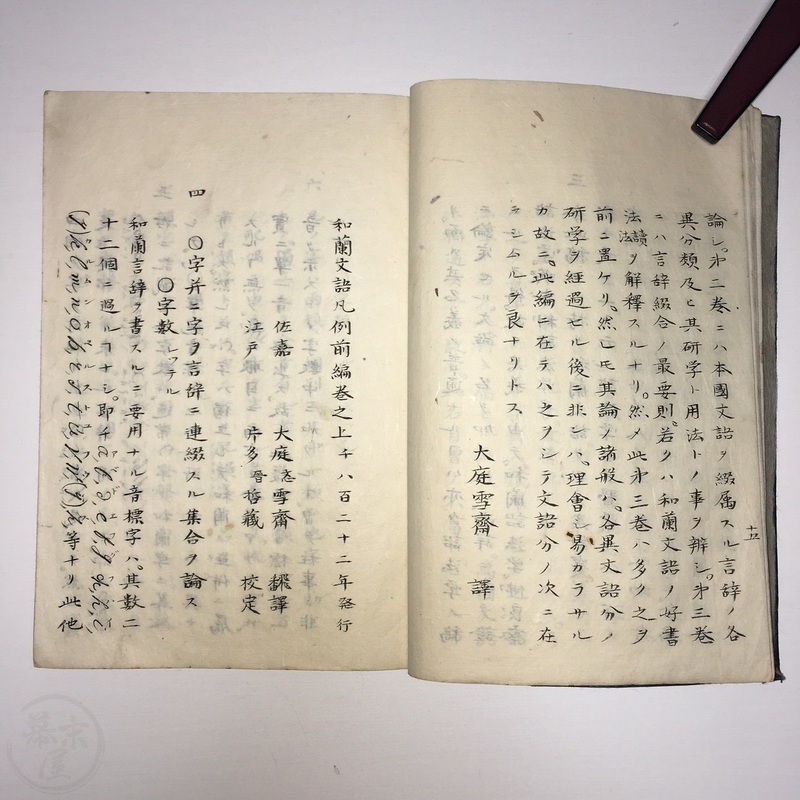 論シ。第二巻ニハ本國文語ヲ綴属スル言辞ノ各
異分類及ヒ其研学ト用法トノ事ヲ辨シ。第三巻
ニハ言辞綴合ノ最要則。若クハ和蘭文語ノ好書
法讀法ヲ解釋スルナリ。然メ此第三巻ハ多ク之ヲ
前ニ置ケリ。然レ𪜈其論ノ諸般ハ。各異文語分ノ
研学ヲ經過セル後ニ非レハ。理會シ易カラサル
カ故ニ。此編ニ在テハ之ヲシテ文語分ノ次ニ在
ラシムルヲ良ナリトス
大庭雪齋 譯
十五
和蘭文語凡例前編巻之上千八百二十二年発行
佐嘉 大庭 忞 雪齋 飜譯
江戸 片多 晉 哲藏 校定
四 〇字并ニ字ヲ言辞ニ連綴スル集合ヲ論ス
〇字數 レッテル
和蘭言辞ヲ書スルニ要用ナル音標字ハ。其數二
十二個ニ過ルヿナシ。即チ a b d e f g h i j
k l m n o p r s t u v w z 等ナリ此他